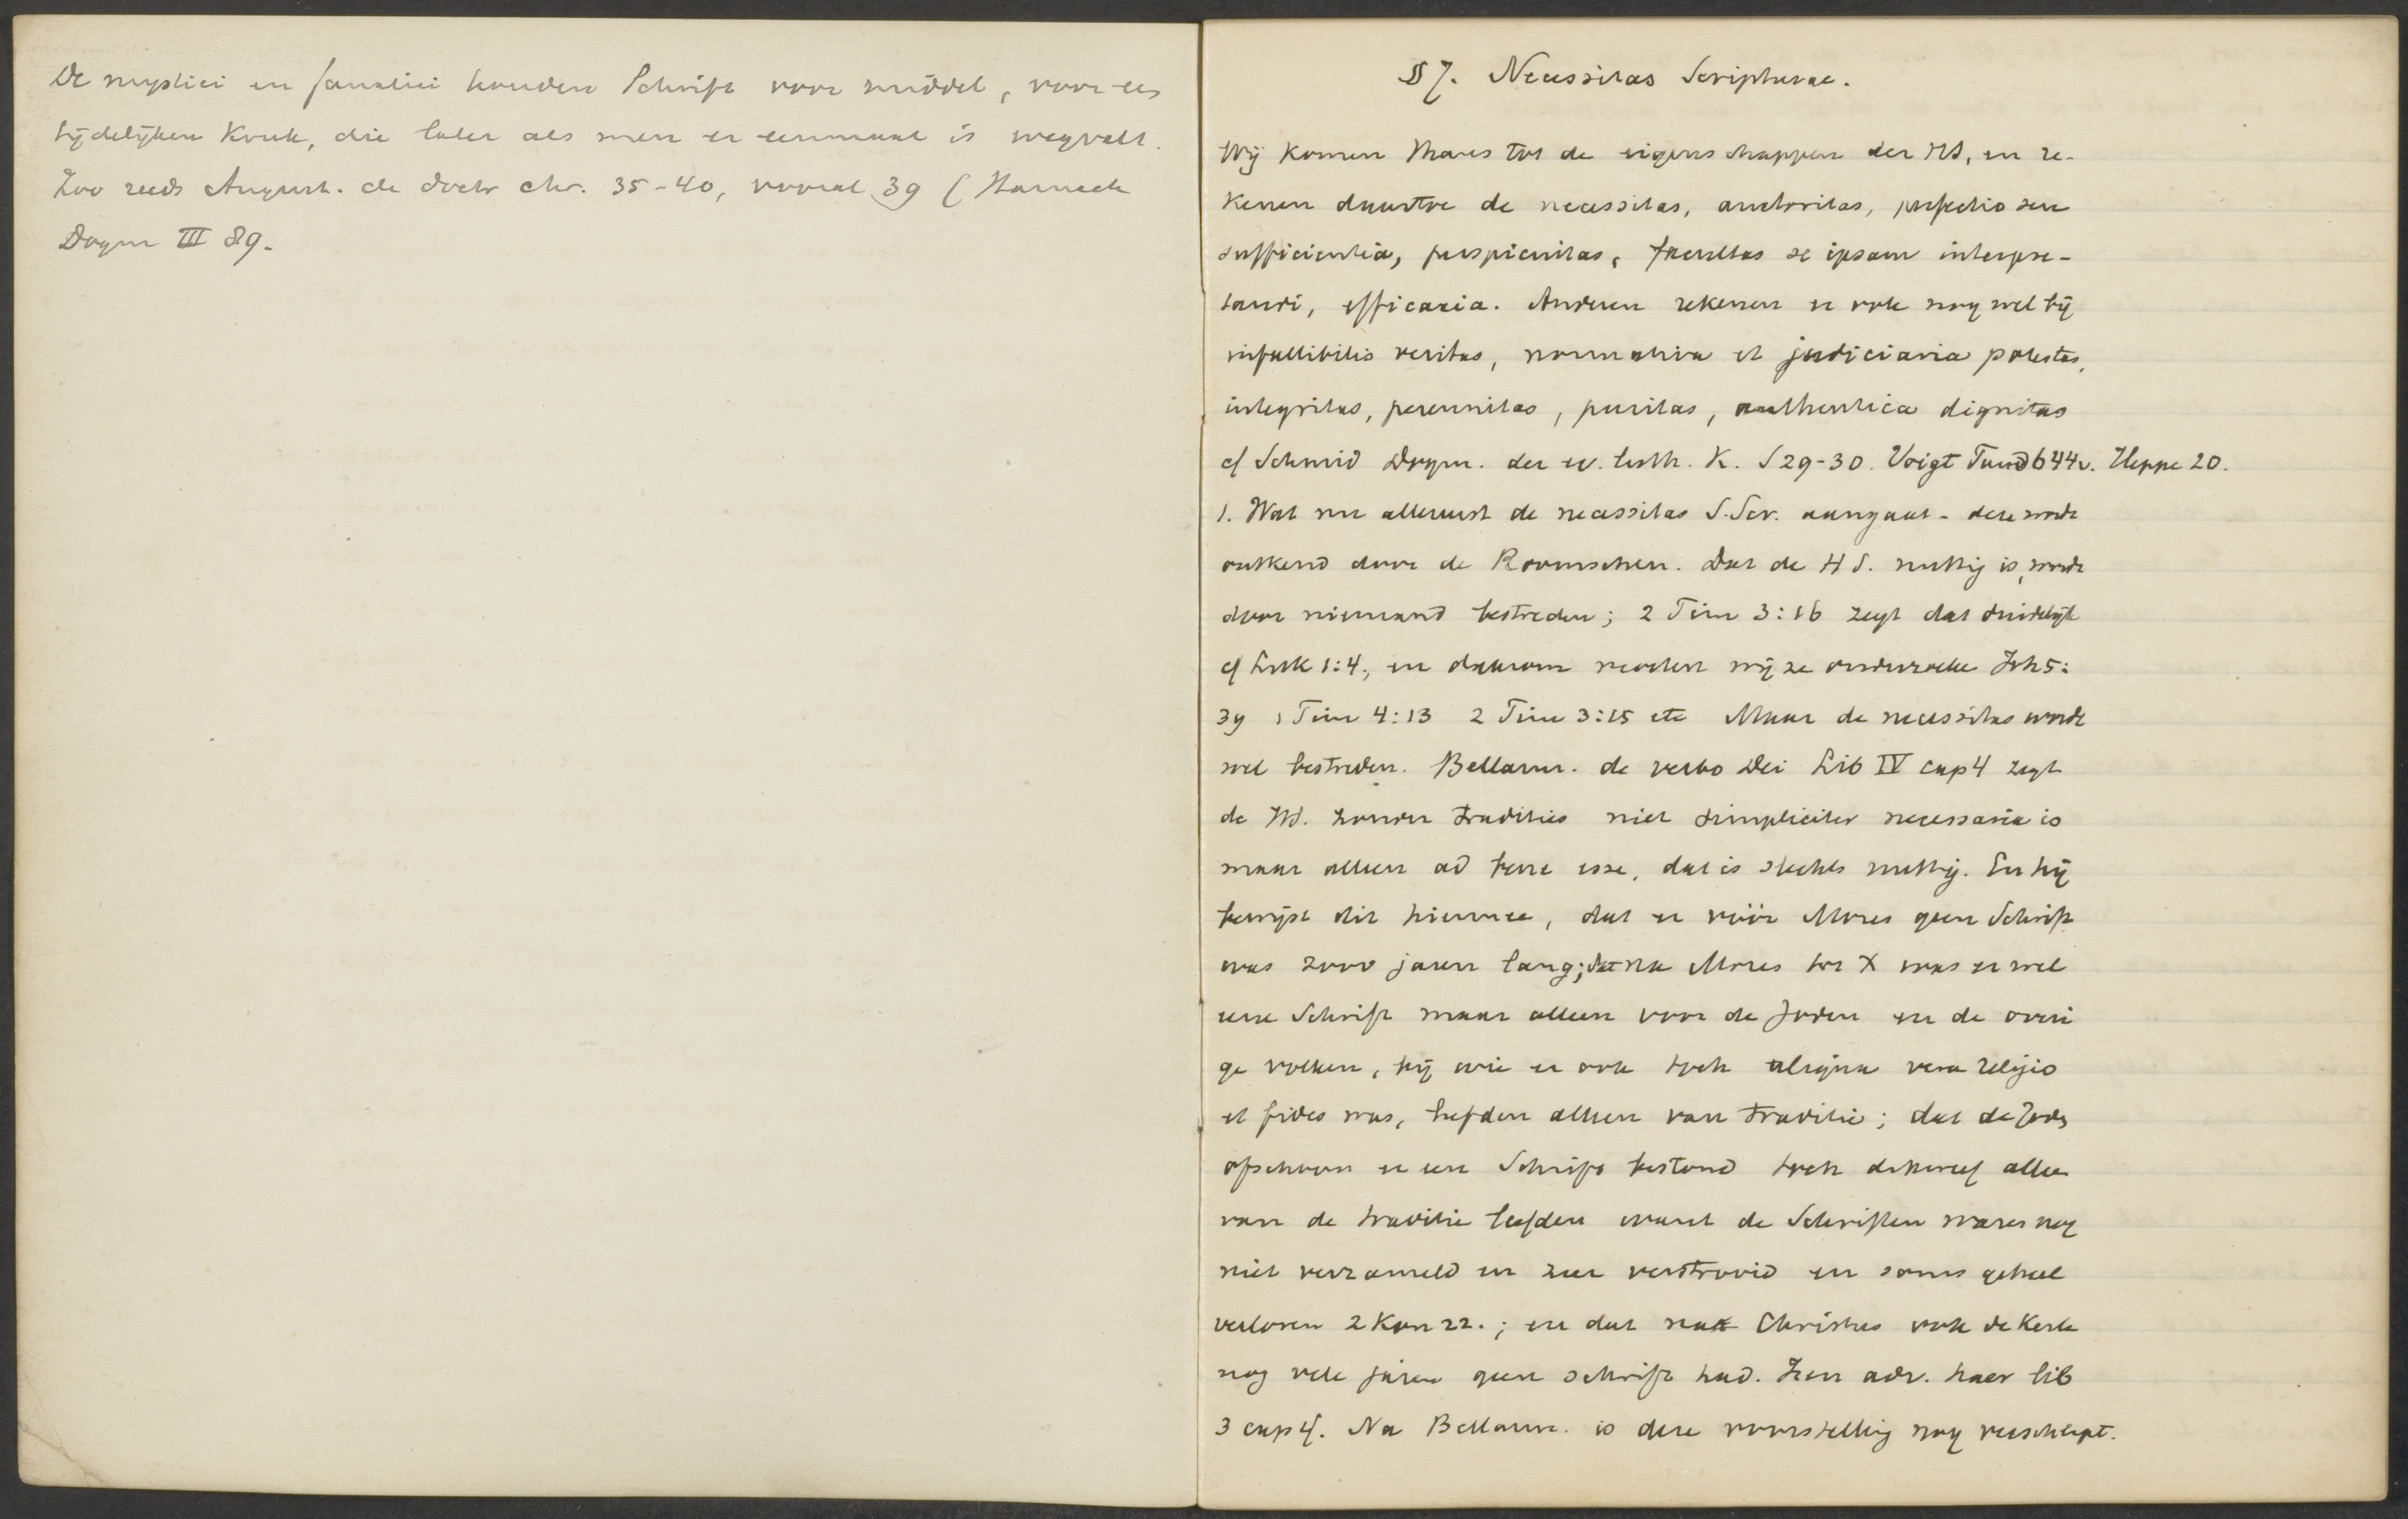 De mystici en fanatici houden Schrift voor middel, voor een
tijdelijken Kruk, die later als men er eenmaal is wegvalt.
Zoo reeds August. de doctr chr. 35-40, vooral 39 (Harnack
Dogm III 89.
§ 7. Necessitas Scripturae.
Wij komen thans tot de eigenschappen der HS, en re-
kenen daartoe de necessitas, auctoritas, perfectio seu
sufficientia, perspicuitas, facultas se ipsam interpre-
tandi, efficacia. Anderen rekenen er ook nog wel bij
infallibilis veritas, normativa et judiciaria potestas,
integritas, perennitas, puritas, authentica dignitas
cf Schmid Dogm. der ev. luth. K. S 29-30. Voigt Fund 644v. Heppe 20.
1. Wat nu allereerst de necessitas S. Scr. aangaat - deze wordt
ontkend door de Roomschen. Dat de H S. nuttig is, wordt
door niemand bestreden; 2 Tim 3:16 zegt dat duidelijk
cf Luk 1:4; en daarom moeten wij ze onderzoeken Joh 5:
39 1 Tim 4:13 2 Tim 3:15 etc Maar de necessitas wordt
wel bestreden. Bellarm. de verbo Dei Lib IV cap 4 zegt
de HS. zonder tradities niet simpliciter necessaria is
maar alleen ad bene esse, dat is slechts nuttig. En hij
bewijst dit hiermee, dat er vóór Mozes geen Schrift
was 2000 jaren lang; dat na Mozes tot X was er wel
eene Schrift maar alleen voor de Joden en de overi
ge volken, bij wie er ook toch aliqua vera religio
et fides was, leefden alleen van traditie; dat de Joden
ofschoon er een Schrift bestond toch dikwerf alleen
van de traditie leefden want de Schriften waren nog
niet verzameld en zeer verstrooid en soms geheel
verloren 2 Kon 22.; en dat na Christus ook de Kerk
nog vele jaren geen schrift had. Iren adv. haer lib
3 cap 4. Na Bellarm. is deze voorstelling nog verscherpt.